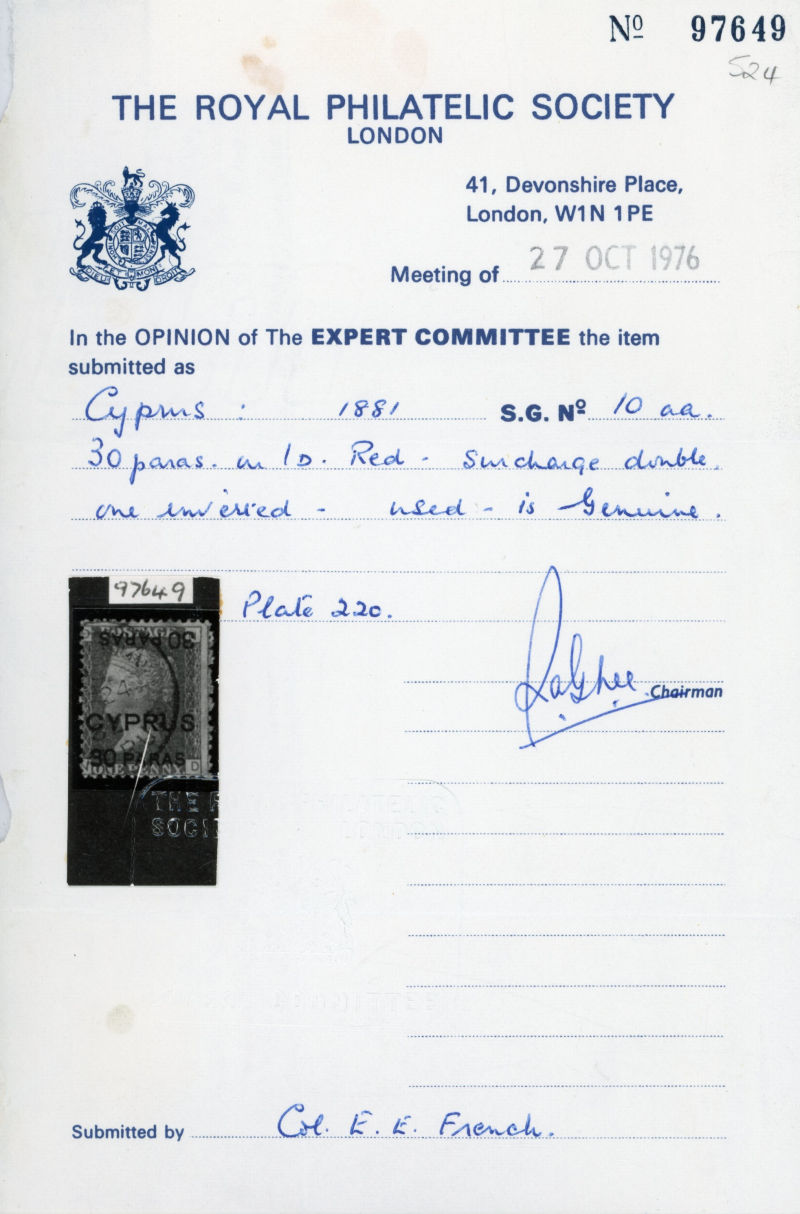 Nº 97649
524
THE ROYAL PHILATELIC SOCIETY
LONDON
41, Devonshire Place,
London, W1N 1PE
Meeting of 27 OCT 1976
In the OPINION of The EXPERT COMMITTEE the item
submitted as
Cyprus : 1881 S.G. Nº 10 aa.
30 paras. on 1D. Red - Surcharge double,
one inverted - used - is Genuine.
97649
Plate 220.
30 PARAS
CYPRUS
30 PARAS
ONE PENNY D
Chairman
THE
SOCI
Submitted by Col. E. E. French.